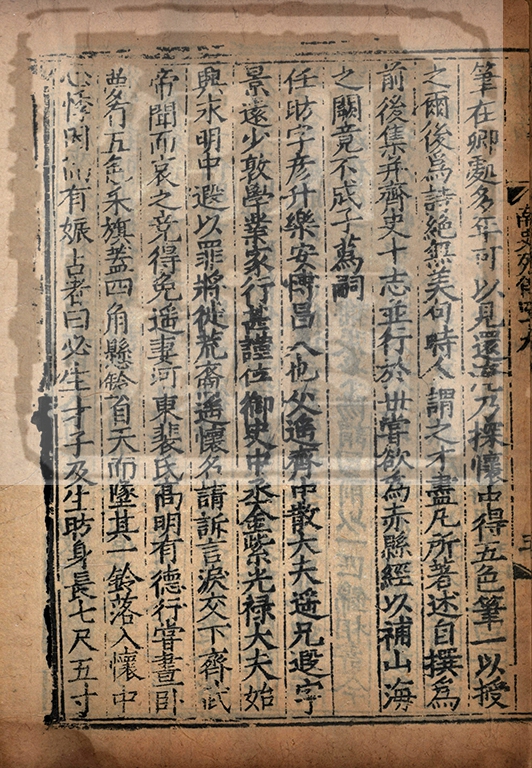 筆在卿處多年可以見還淹乃探懷中得五色筆一以授
之爾後爲詩絕無美句時人謂之才盡凡所著述自撰爲
前後集并齊史十志並行於世嘗欲爲赤縣經以補山海
之闕竟不成子蒍嗣
任昉字彥升樂安博昌人也父遙齊中散大夫遙兄遐字
景遠少敦學業家行甚謹位御史中丞金紫光禄大夫始
興永明中遐以罪將徙荒裔遙懷名請訴言淚交下齊武
帝聞而哀之竟得免遙妻河東裴氏高明有德行嘗晝卧
夢有五色采旗蓋四角懸鈴自天而墜其一鈴落入懷中
心悸因而有娠占者曰必生才子及生昉身長七尺五寸